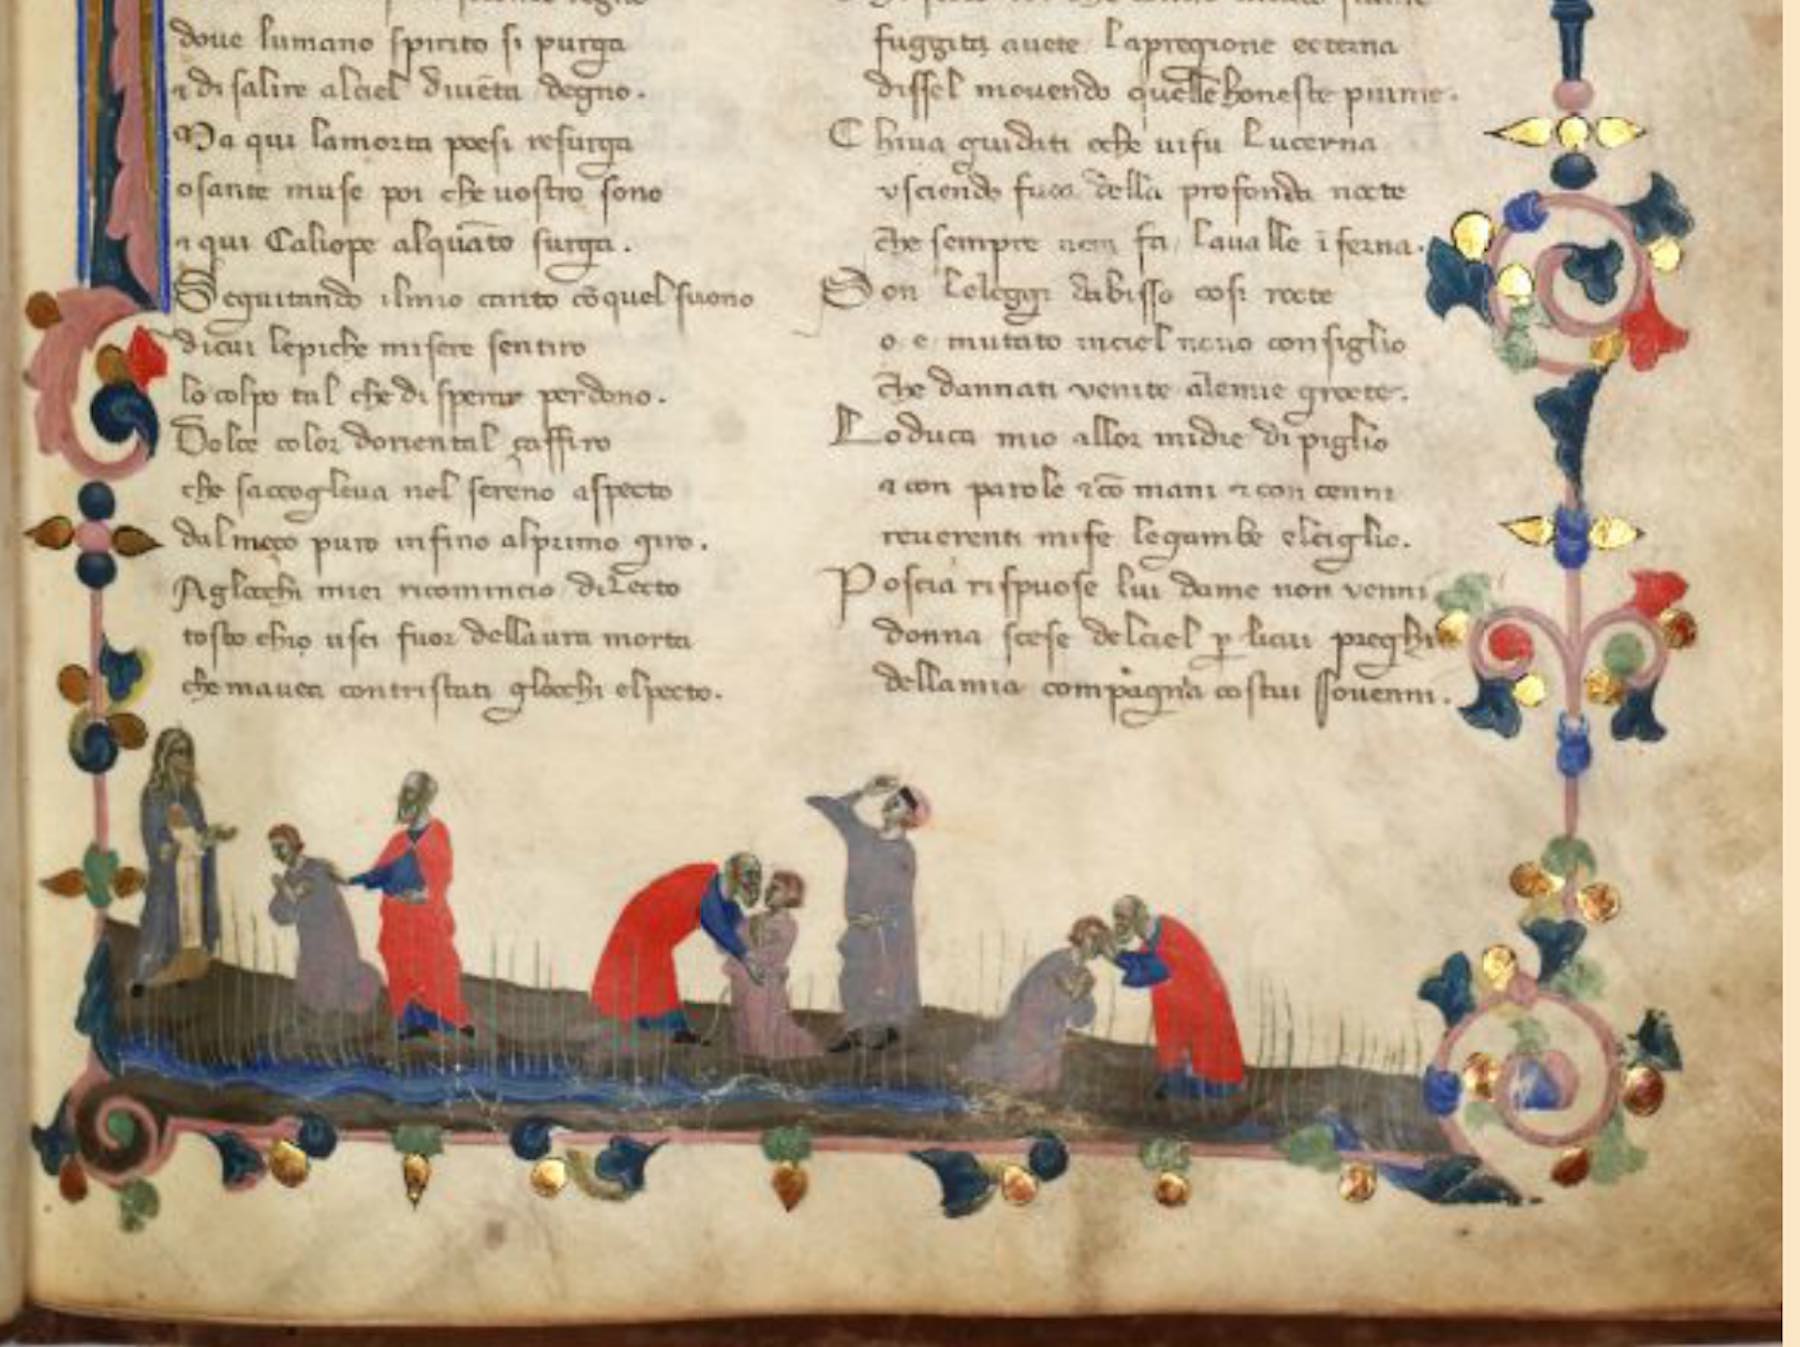 doue lumano spirito si purga
⁊ di salire alciel diuēta degno.
Ma qui lamorta poesi resurga
o sante muse poi che uostro sono
⁊ qui Caliope alquāto surga.
Seguitando ilmio canto cō quel suono
dicui lepiche misere sentiro
lo colpo tal che di sperar perdono.
Dolce color doriental çaffiro
che saccoglieua nel sereno aspecto
dal meço puro infino alprimo giro.
Aglocchi miei ricomincio dilecto
tosto chio usci fuor dellaura morta
che mauea contristati glocchi elpecto.
fuggiti auete la pregione ecterna
dissel mouendo quelle honeste piume.
Chiua guidati o che uifu Lucerna
vsciendo fuor della profonda nocte
che sempre nera fa laualle īferna.
Son le leggi dabisso cosi rocte
o e mutato inciel nouo consiglio
che dannati venite alemie grocte.
Loduca mio allor midie di piglio
⁊ con parole ⁊ cō mani ⁊ con cenni
reuerenti mise legambe elciglio.
Poscia rispuose lui dame non venni
donna scese delciel ꝑ licui preghi
dellamia compagnia costui souenni.